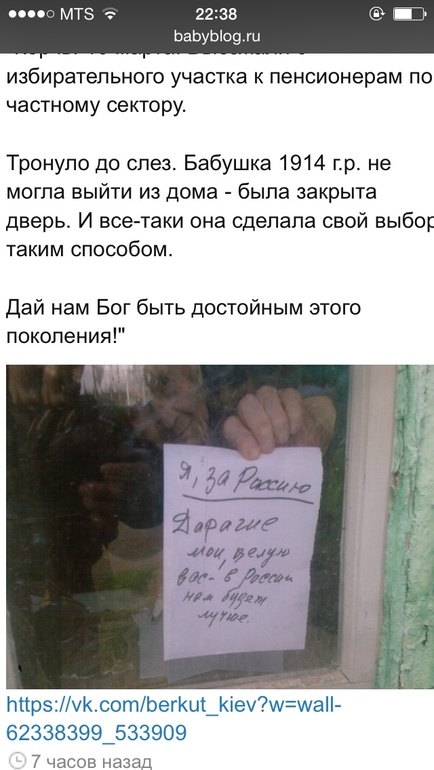 MTS 22:38
babyblog.ru
избирательного участка к пенсионерам по
частному сектору.
Тронуло до слез. Бабушка 1914 г.р. не
могла выйти из дома - была закрыта
дверь. И все-таки она сделала свой выбор
таким способом.
Дай нам Бог быть достойным этого
поколения!"
Я, за Россию
Дарагие
мои, целую
вас - в России
нам будет
лучше.
https://vk.com/berkut_kiev?w=wall-
62338399_533909
7 часов назад